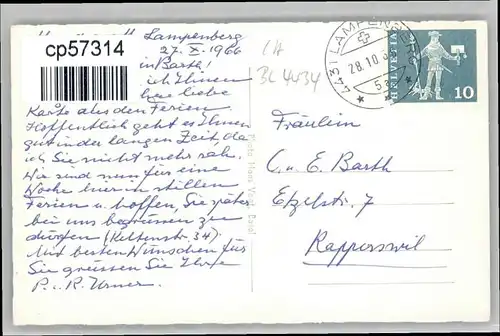 cp57314
Lampenberg
27. X. 1966
Barth!
ich Ihnen
liebe
Karte aus den Ferien.
Hoffentlich geht es Ihnen
gut in der langen Zeit, da
ich Sie nicht mehr sah.
Wir sind nun für eine
Woche hier in stillen
Ferien u. hoffen, Sie später
bei uns begrüssen zu
dürfen (Keltenstr. 34).
Mit besten Wünschen für
Sie grüssen Sie Ihre
P. u. R. Urner.
CH
BL 4434
4431 LAMPENBERG
28.10
HELVETIA
10
Fräulein
C. u. E. Barth
Etzelstr. 7
Rapperswil